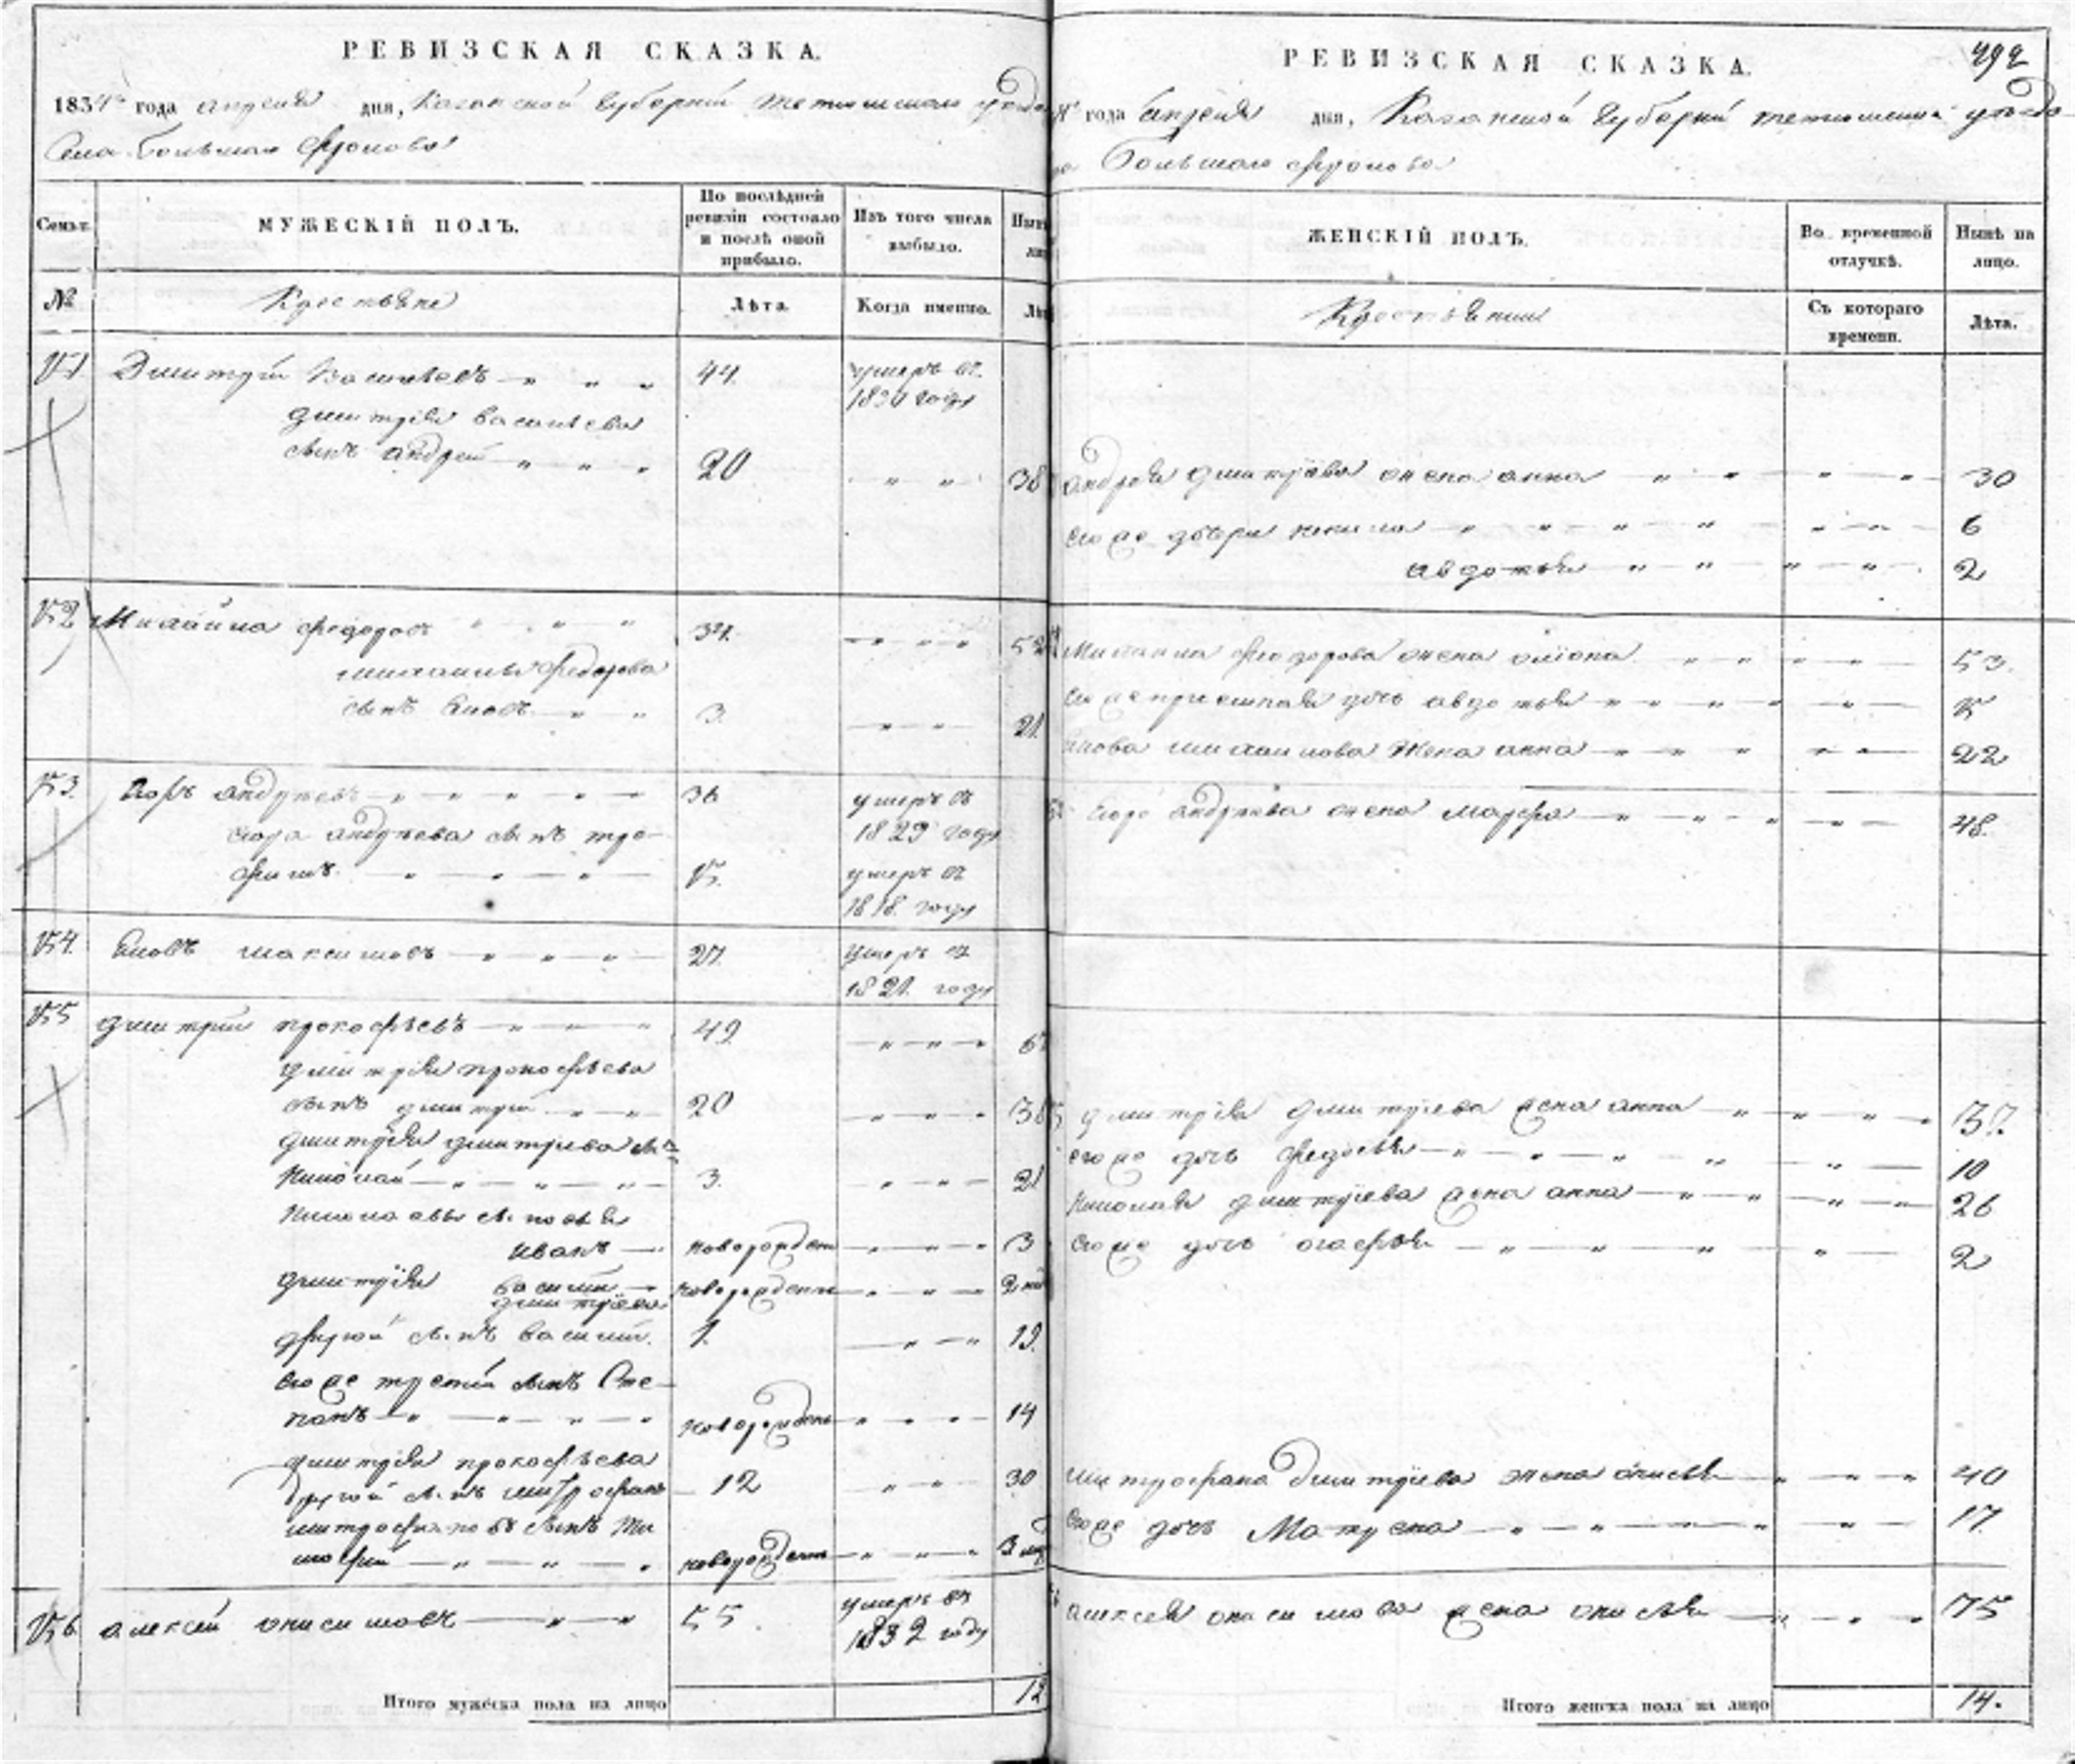 РЕВИЗСКАЯ СКАЗКА.
1834го года апреля дня, Казанской Губернiи тетюшскаго уезда
Села Большаго Фролова
Семьи.
МУЖЕСКIЙ ПОЛЪ.
По послѣдней ревизiи состояло и послѣ оной прибыло.
Изъ того числа выбыло.
№
Крестьяне
Лѣта.
Когда именно.
Дмитрiй Васильевъ 44. умеръ въ
1830 году
дмитрiя васильева
сынъ андрей 20 38
52 Михаила федоровъ 34. 52
михаила федорова
сынъ 3. 21.
53. Егоръ андреевъ 36 умеръ въ
1829 году
егора андреева сынъ тро-
фимъ 5. умеръ въ
1818. году
54. максимовъ 27. умеръ въ
1821. году
55 дмитрiй прокофьевъ 49.
дмитрiя прокофьева
сынъ дмитрiй 20 38
дмитрiя дмитрiева
Николай 3. 21
Николаевы сыновья
иванъ новорожденъ 3
дмитрiя василiй новорожденъ
дмитрiева
другой сынъ василiй. 1. 19.
его же третiй сынъ Сте-
панъ новорожденъ 14
дмитрiя прокофьева
другой сынъ митрофанъ 12 30
митрофановъ сынъ Ти
мофей новорожденъ 3
56 алексей онисимовъ 55. умеръ въ
1832 году
Итого мужеска пола на лицо 12
РЕВИЗСКАЯ СКАЗКА.
492
года апреля дня, Казанской Губернiи тетюшскаго уезда
Большаго фролова
ЖЕНСКIЙ ПОЛЪ.
Во временной отлучкѣ.
Нынѣ на лицо.
Крестьянки
Съ котораго времени.
Лѣта.
андрея дмитрiева жена анна 30
его же дочери 6
авдотья 2
Михаила федорова жена 53.
его же дочь авдотья 5
михайлова жена анна 22
андреева жена марфа 48.
дмитрiя дмитрiева жена анна 37.
его же дочь федосья 10
Николая дмитрiева жена анна 26
его же дочь агафья 2
митрофана дмитрiева жена анисья 40
его же дочь Матрена 17.
алексея онисимова жена анисья 75
Итого женска пола на лицо 14.